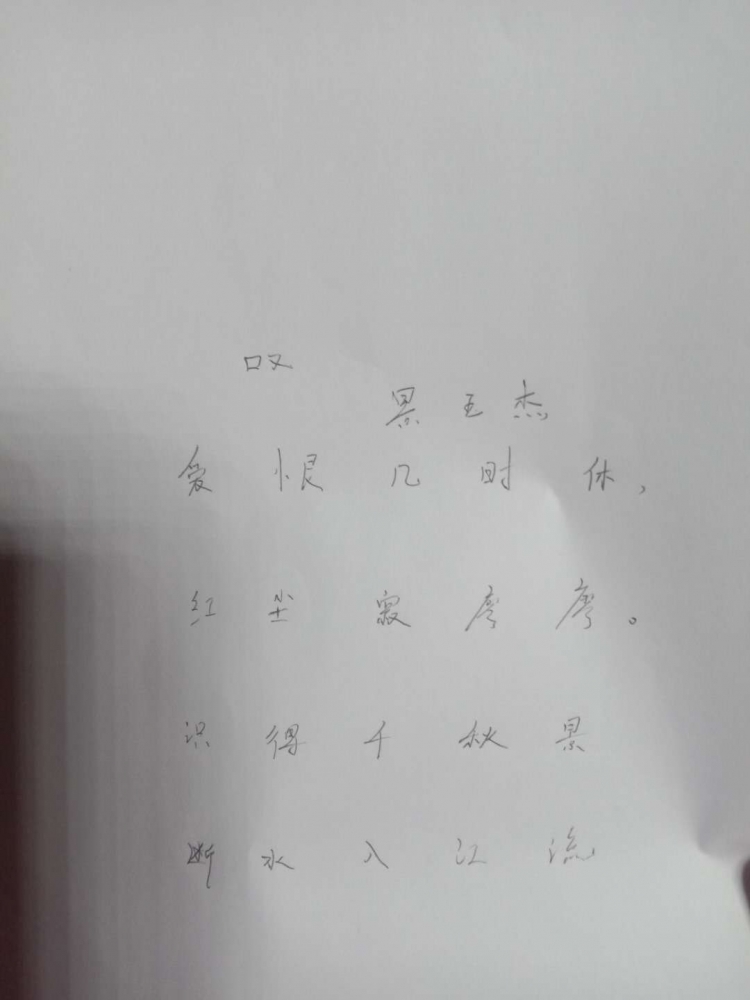 叹
景王杰
爱恨几时休,
红尘寂寥寥。
识得千秋景
断水入江流